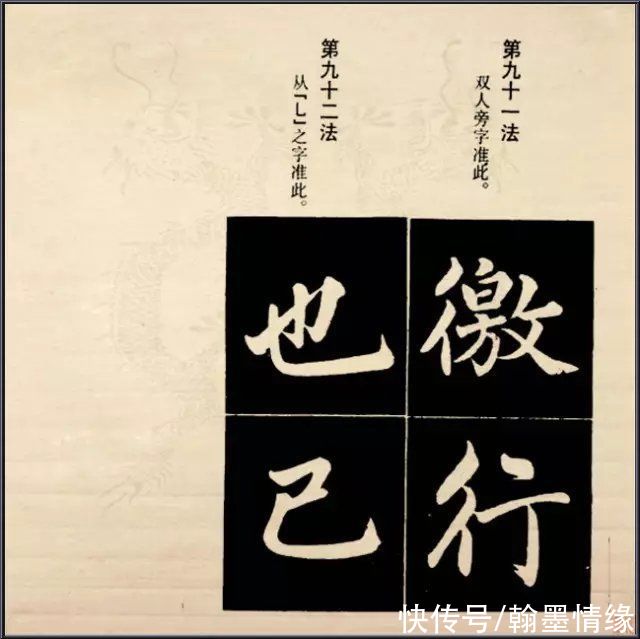 第九十一法
双人旁字准此。
徼行
第九十二法
从「乚」之字准此。
也已
快传号/翰墨情缘